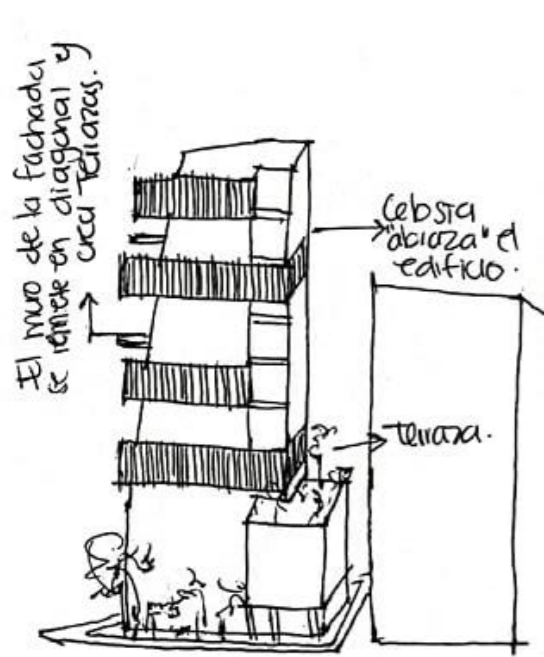 El muro de la fachada
se remete en diagonal y
crea Terrazas.
Celosía
"abraza" el
edificio.
Terraza.